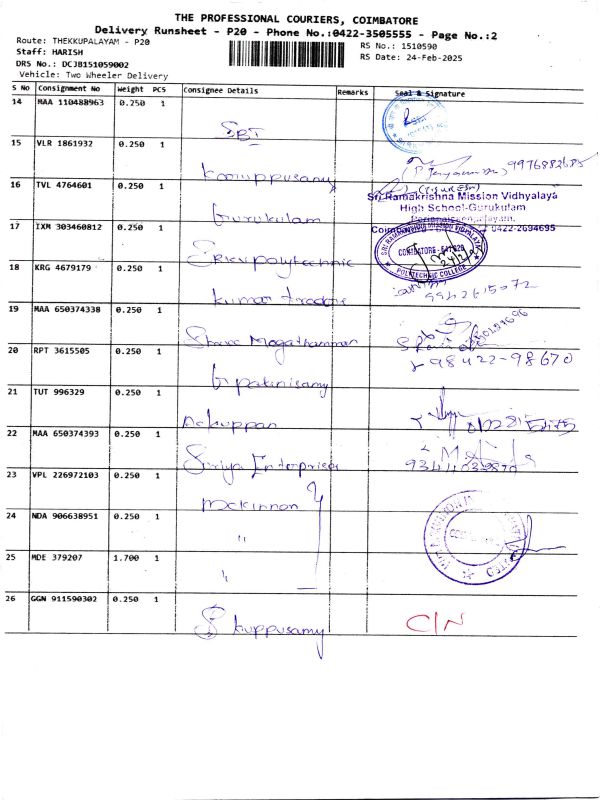 THE PROFESSIONAL COURIERS, COIMBATORE
Delivery Runsheet - P20 - Phone No.:0422-3505555 - Page No.:2
Route: THEKKUPALAYAM - P20
RS No.: 1510590
Staff: HARISH
RS Date: 24-Feb-2025
DRS No.: DCJB151059002
Vehicle: Two Wheeler Delivery
S No Consignment No Weight PCS Consignee Details Remarks Seal & Signature
14 MAA 110488963 0.250 1
SBI
15 VLR 1861932 0.250 1
Karuppusamy
16 TVL 4764601 0.250 1
Gurukulam
Sri Ramakrishna Mission Vidhyalaya
High School-Gurukulam
Periyanaickenpalayam,
0422-2694695
17 IXM 303460812 0.250 1
SRKV polytechnic
SRI RAMAKRISHNA MISSION VIDYALAYA
COIMBATORE - 641 020
POLYTECHNIC COLLEGE
18 KRG 4679179 0.250 1
Kumar traders
9942615072
19 MAA 650374338 0.250 1
20 RPT 3615505 0.250 1
G palanisamy
98422-98670
21 TUT 996329 0.250 1
22 MAA 650374393 0.250 1
Suriya Enterprises
23 VPL 226972103 0.250 1
Mckinnon
24 NDA 906638951 0.250 1
"
25 MDE 379207 1.700 1
"
26 GGN 911590302 0.250 1
S kuppusamy
C/N